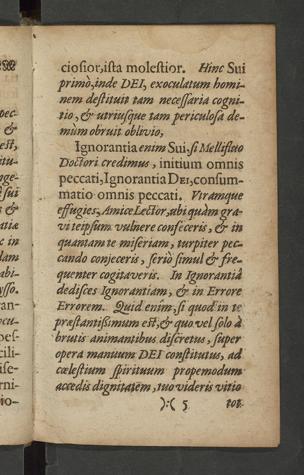 ciosior, ista molestior. Hinc Sui
primò, inde DEI, exoculatum homi-
nem destituit tam necessaria cogni-
tio, & utriusque tam periculosa de-
mùm obruit oblivio,
Ignorantia enim Sui, si Mellifluo
Doctori credimus, initium omnis
peccati, Ignorantia DEI, consum-
matio omnis peccati. Utramque
effugies, Amice Lector, ubi quàm gra-
vi teipsum vulnere confeceris, & in
quantam te miseriam, turpiter pec-
cando conjeceris, seriò simul & fre-
quenter cogitaveris. In Ignorantiâ
dedisces Ignorantiam, & in Errore
Errorem. Quid enim, si quod in te
præstantissimum est, & quo vel solo à
brutis animantibus discretus, super
opera manuum DEI constitutus, ad
cælestium spirituum propemodum
accedis dignitatem, tuo videris vitio
):( 5 tot